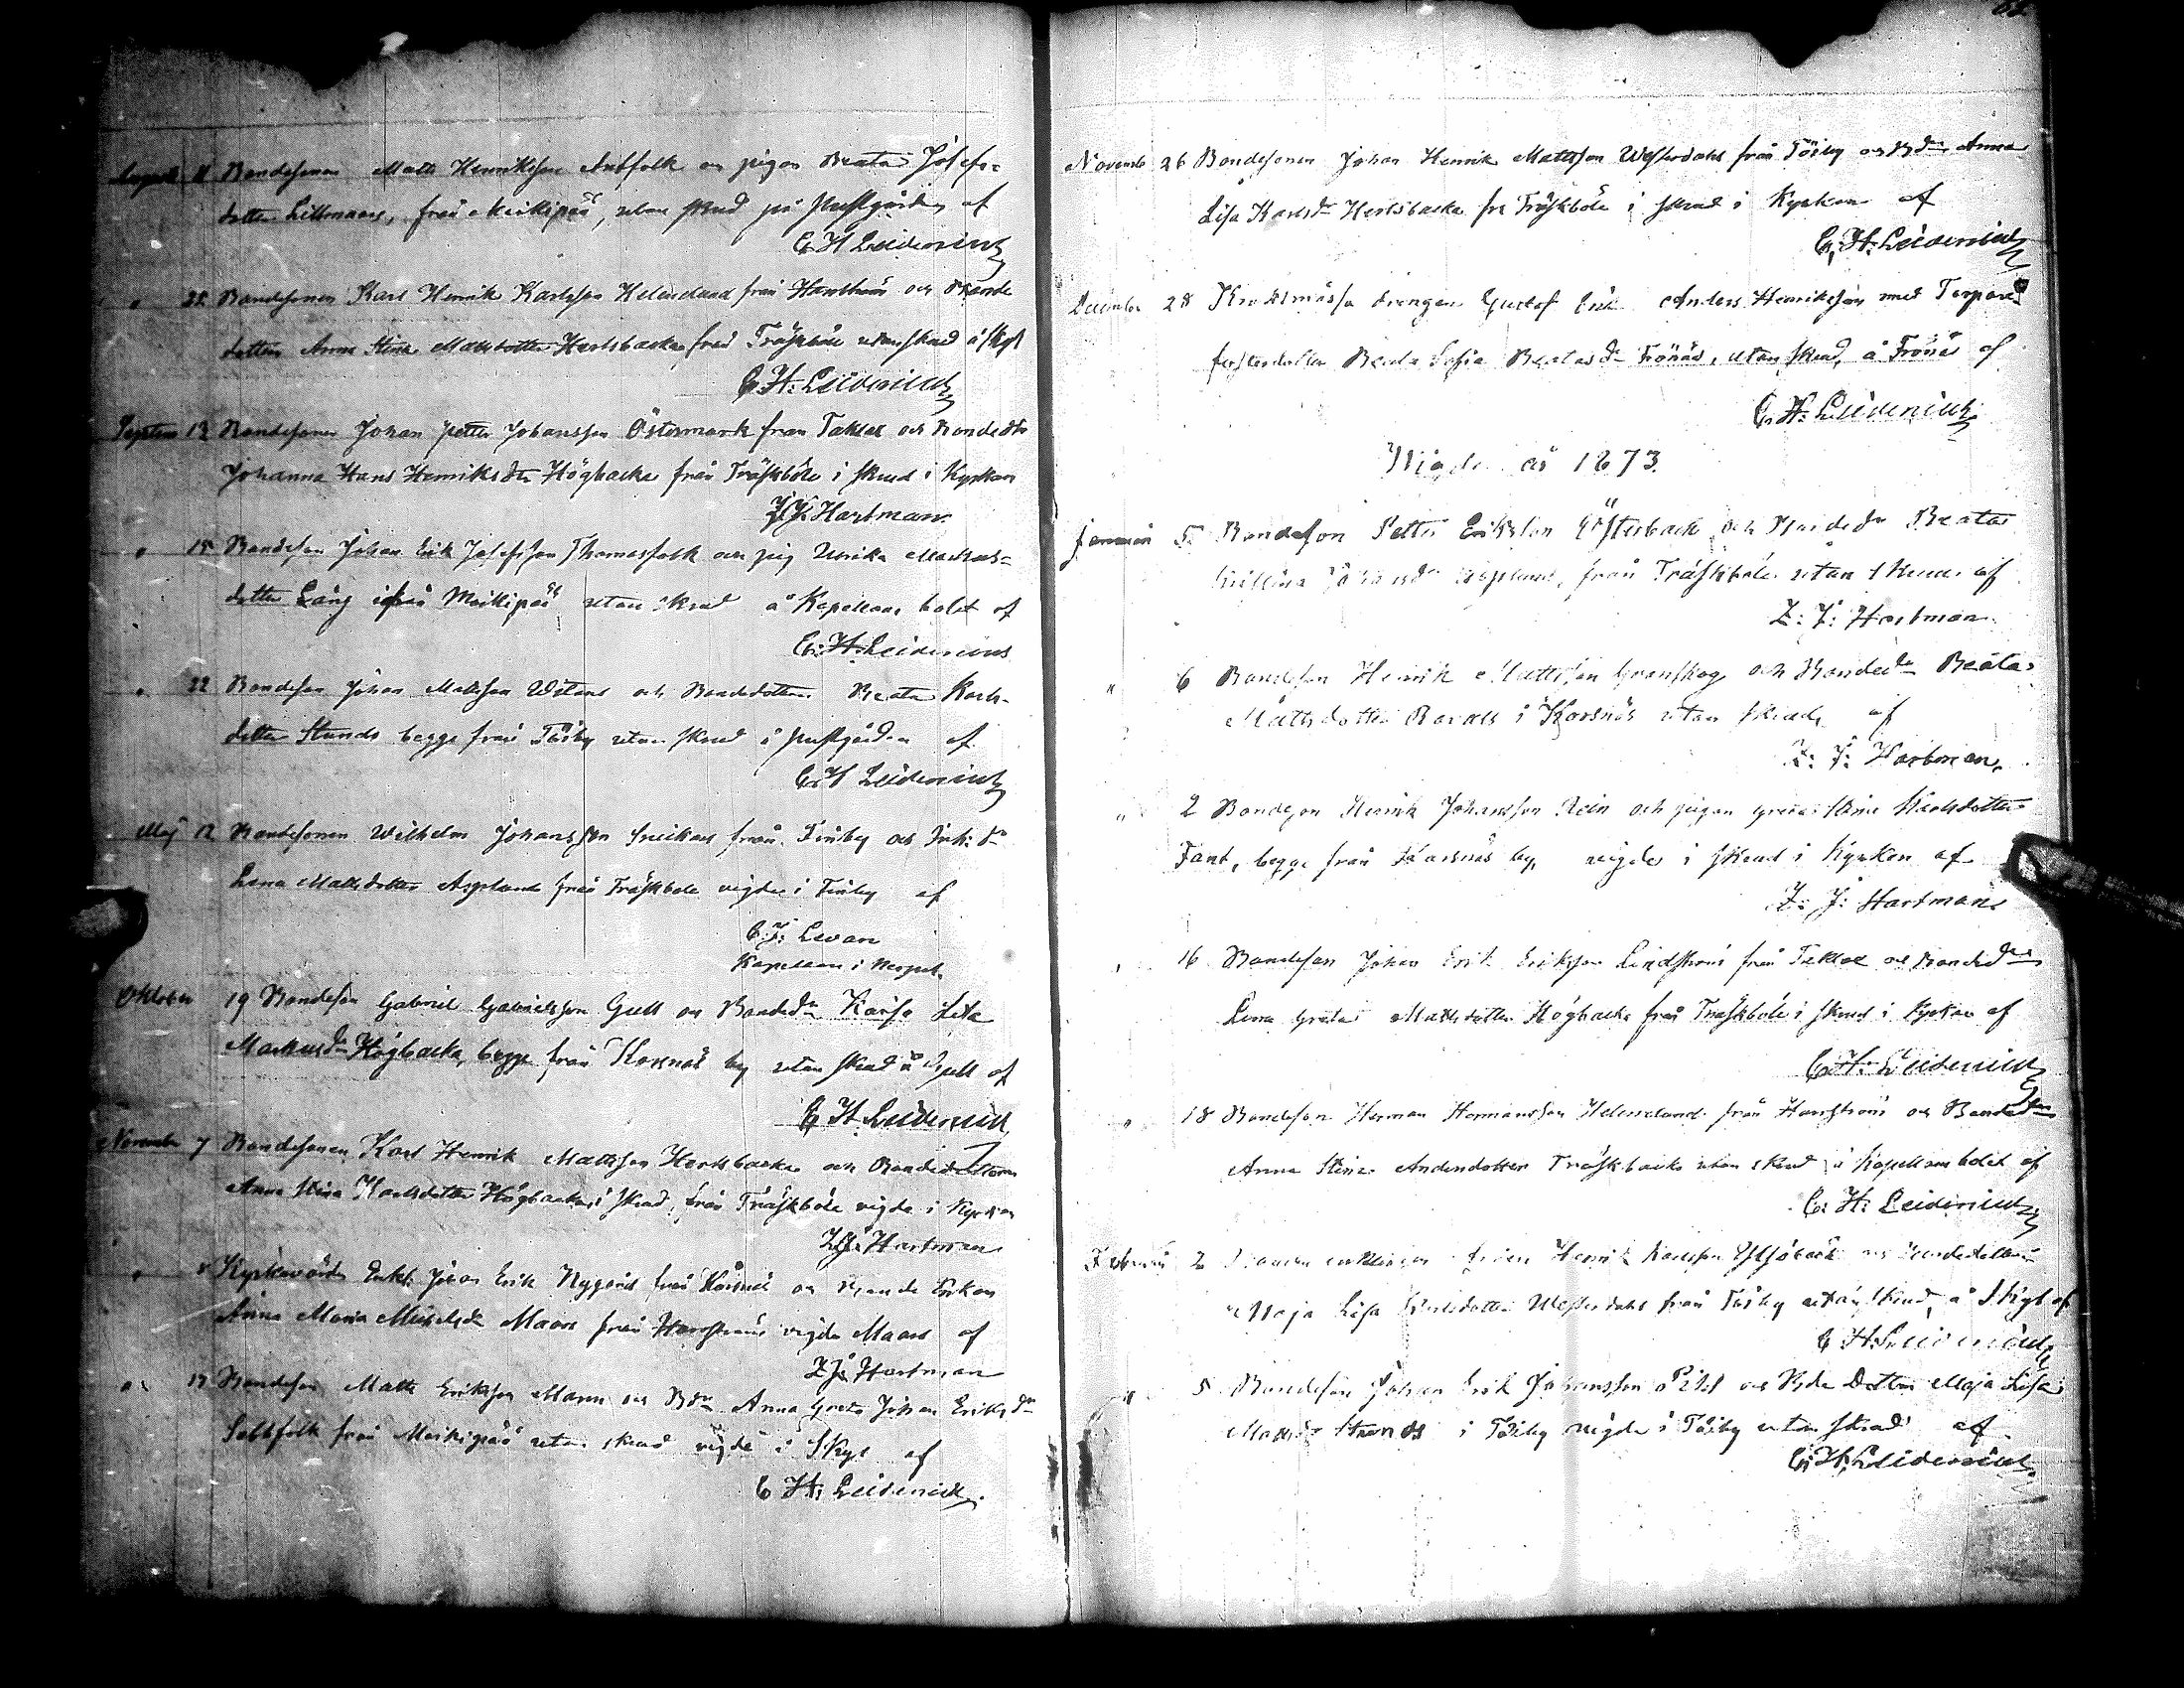 Augusti 11 Bondesonen Matts Henriksson Antfolk och pigan Beata Josefs-
dotter Lillmaars, från Meikipää, utan skrud på Prestgården af
C. H. Leidenius
" 25 Bondesonen Karl Henrik Karlsson Helenelund från Harrström och Bonde
dottren Anna Stina Mattsdotter Hertsbacka från Träskböle utan skrud å Skgl
C. H. Leidenius
Septem 12 Bondesonen Johan Petter Johansson Östermark från Taklax och Bondedtr
Johanna Hans Henriksdtr Högbacka från Träskböle i skrud i Kyrkan
Z J. Hartman
" 15 Bondeson Johan Erik Josefsson Thomasfolk och pig Ulrika Markus-
dotter Lång ifrån Meikipää utan skrud å Kapellans bolet af
C. H. Leidenius
" 22 Bondeson Johan Mattsson Witens och Bondedottren Beata Karls-
dotter Strands begge från Tåsby utan skrud å Prestgården af
C. H Leidenius
Maj 12 Bondesonen Wilhelm Johansson från Finby och Ink: dr
Lena Mattsdotter Asplund från Träskböle vigde i Finby af
C. J. Levan
Kapellan i Nerpes
Oktober 19 Bondeson Gabriel Gabrielsson Gull och Bondedr Kaisa Lisa
Markusdr Högbacka, begge från Korsnäs by utan skrud å Gull af
C H Leidenius
November 7 Bondesonen Karl Henrik Mattsson Hertsbacka och Bondedottren
Anna Stina Karlsdotter Högbacka i skrud, från Träskböle vigde i Kyrkan
Z. J. Hartman
" Kyrkovärden Enkl: Johan Erik Nygård från Korsnäs och Bonde Enkan
Anna Maria Mickelsdr Maars från Harrström vigde Maars af
Z J. Hartman
" 17 Bondeson Matts Eriksson Mann och Bdr Anna Greta Johan Eriksdr
från Meikipää utan skrud vigde i Skgl af
C H. Leidenius.
Novemb 26 Bondesonen Johan Henrik Mattsson Westerdahl från Tåsby och Bdr Anna
Lisa Karlsdr Hertsbacka fr Träskböle i skrud i Kyrkan af
C. H. Leidenius
December 28 drengen Gustaf Erik Anders Henriksson med Torpare
fosterdotter Beata Sofia Beatasdr Frönäs, utan skrud, å Frönäs af
C. H. Leidenius
Wigde år 1873.
Januari 5 Bondeson Petter Eriksson Österback och Bondedr Beata
Kristina Johansdr Asplund, från Träskböle utan skrud af
Z. J. Hartman.
" 6 Bondeson Henrik Mattsson Granskog och Bondedr Beata
Mattsdotter Bavals i Korsnäs utan skrud af
Z. J. Hartman.
" 2 Bondeson Henrik Johansson Rein och pigan Greta Stina Karlsdotter
Fant, begge från Korsnäs by, vigde i skrud i Kyrkan af
Z. J. Hartman
" 16 Bondeson Johan Erik Eriksson Lindström från Taklax och Bondedr
Lena Greta Mattsdotter Högbacka från Träskböle i skrud i Kyrkan af
C. H. Leidenius
" 18 Bondeson Herman Hermansson Helenelund från Harrström och Bondedr
Anna Stina Andersdotter Träskbacka utan skrud å Kapellans bolet af
C. H. Leidenius
Februari 2 Henrik Karlsson och Bondedottren
Maja Lisa Karlsdotter Westerdahl från Tåsby utan skrud, å Skgl af
C H. Leidenius
" 5 Bondeson Johan Erik Johansson och Bde Dottren Maja Lisa
Mattsdr Strands i Tåsby vigde i Tåsby utan skrud af
C. H. Leidenius